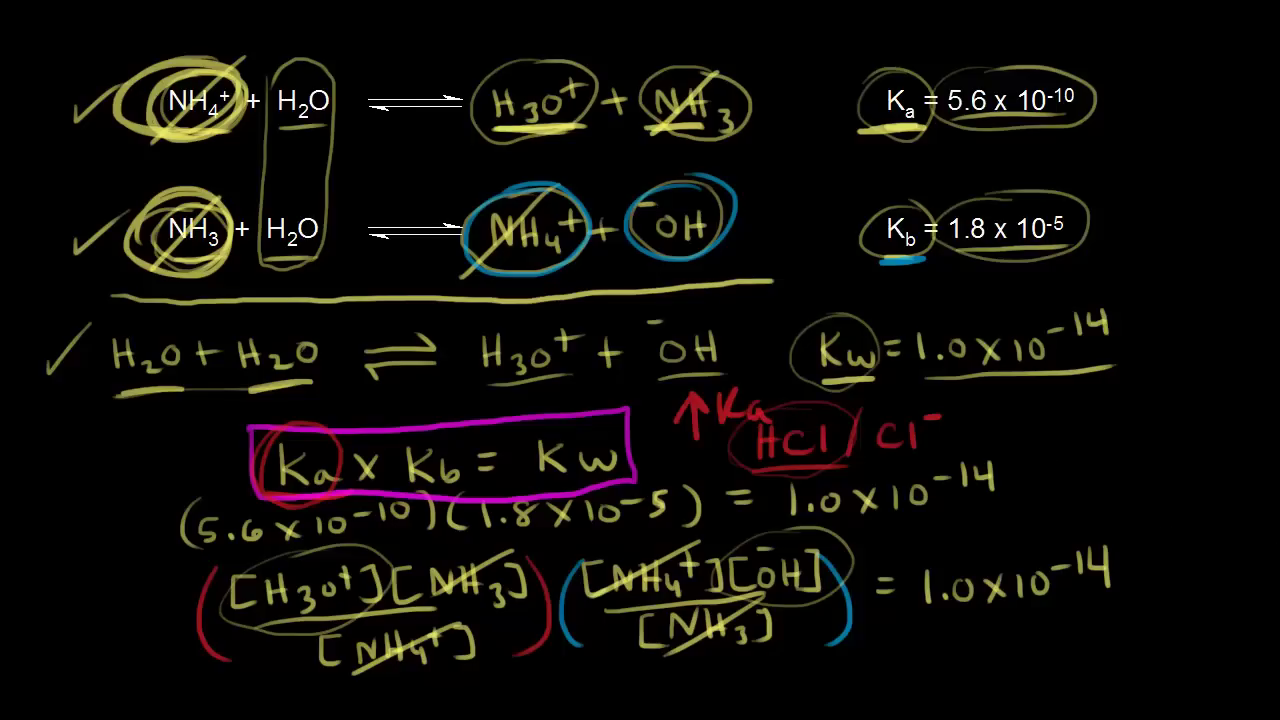 NH₄⁺ + H₂O ⇌ H₃O⁺ + NH₃ Kₐ = 5.6 x 10⁻¹⁰
NH₃ + H₂O ⇌ NH₄⁺ + ⁻OH K_b = 1.8 x 10⁻⁵
H₂O + H₂O ⇌ H₃O⁺ + ⁻OH Kw = 1.0 x 10⁻¹⁴
↑ Ka
HCl / Cl⁻
Ka x Kb = Kw
(5.6 x 10⁻¹⁰)(1.8 x 10⁻⁵) = 1.0 x 10⁻¹⁴
([H₃O⁺][NH₃] / [NH₄⁺]) ([NH₄⁺][⁻OH] / [NH₃]) = 1.0 x 10⁻¹⁴